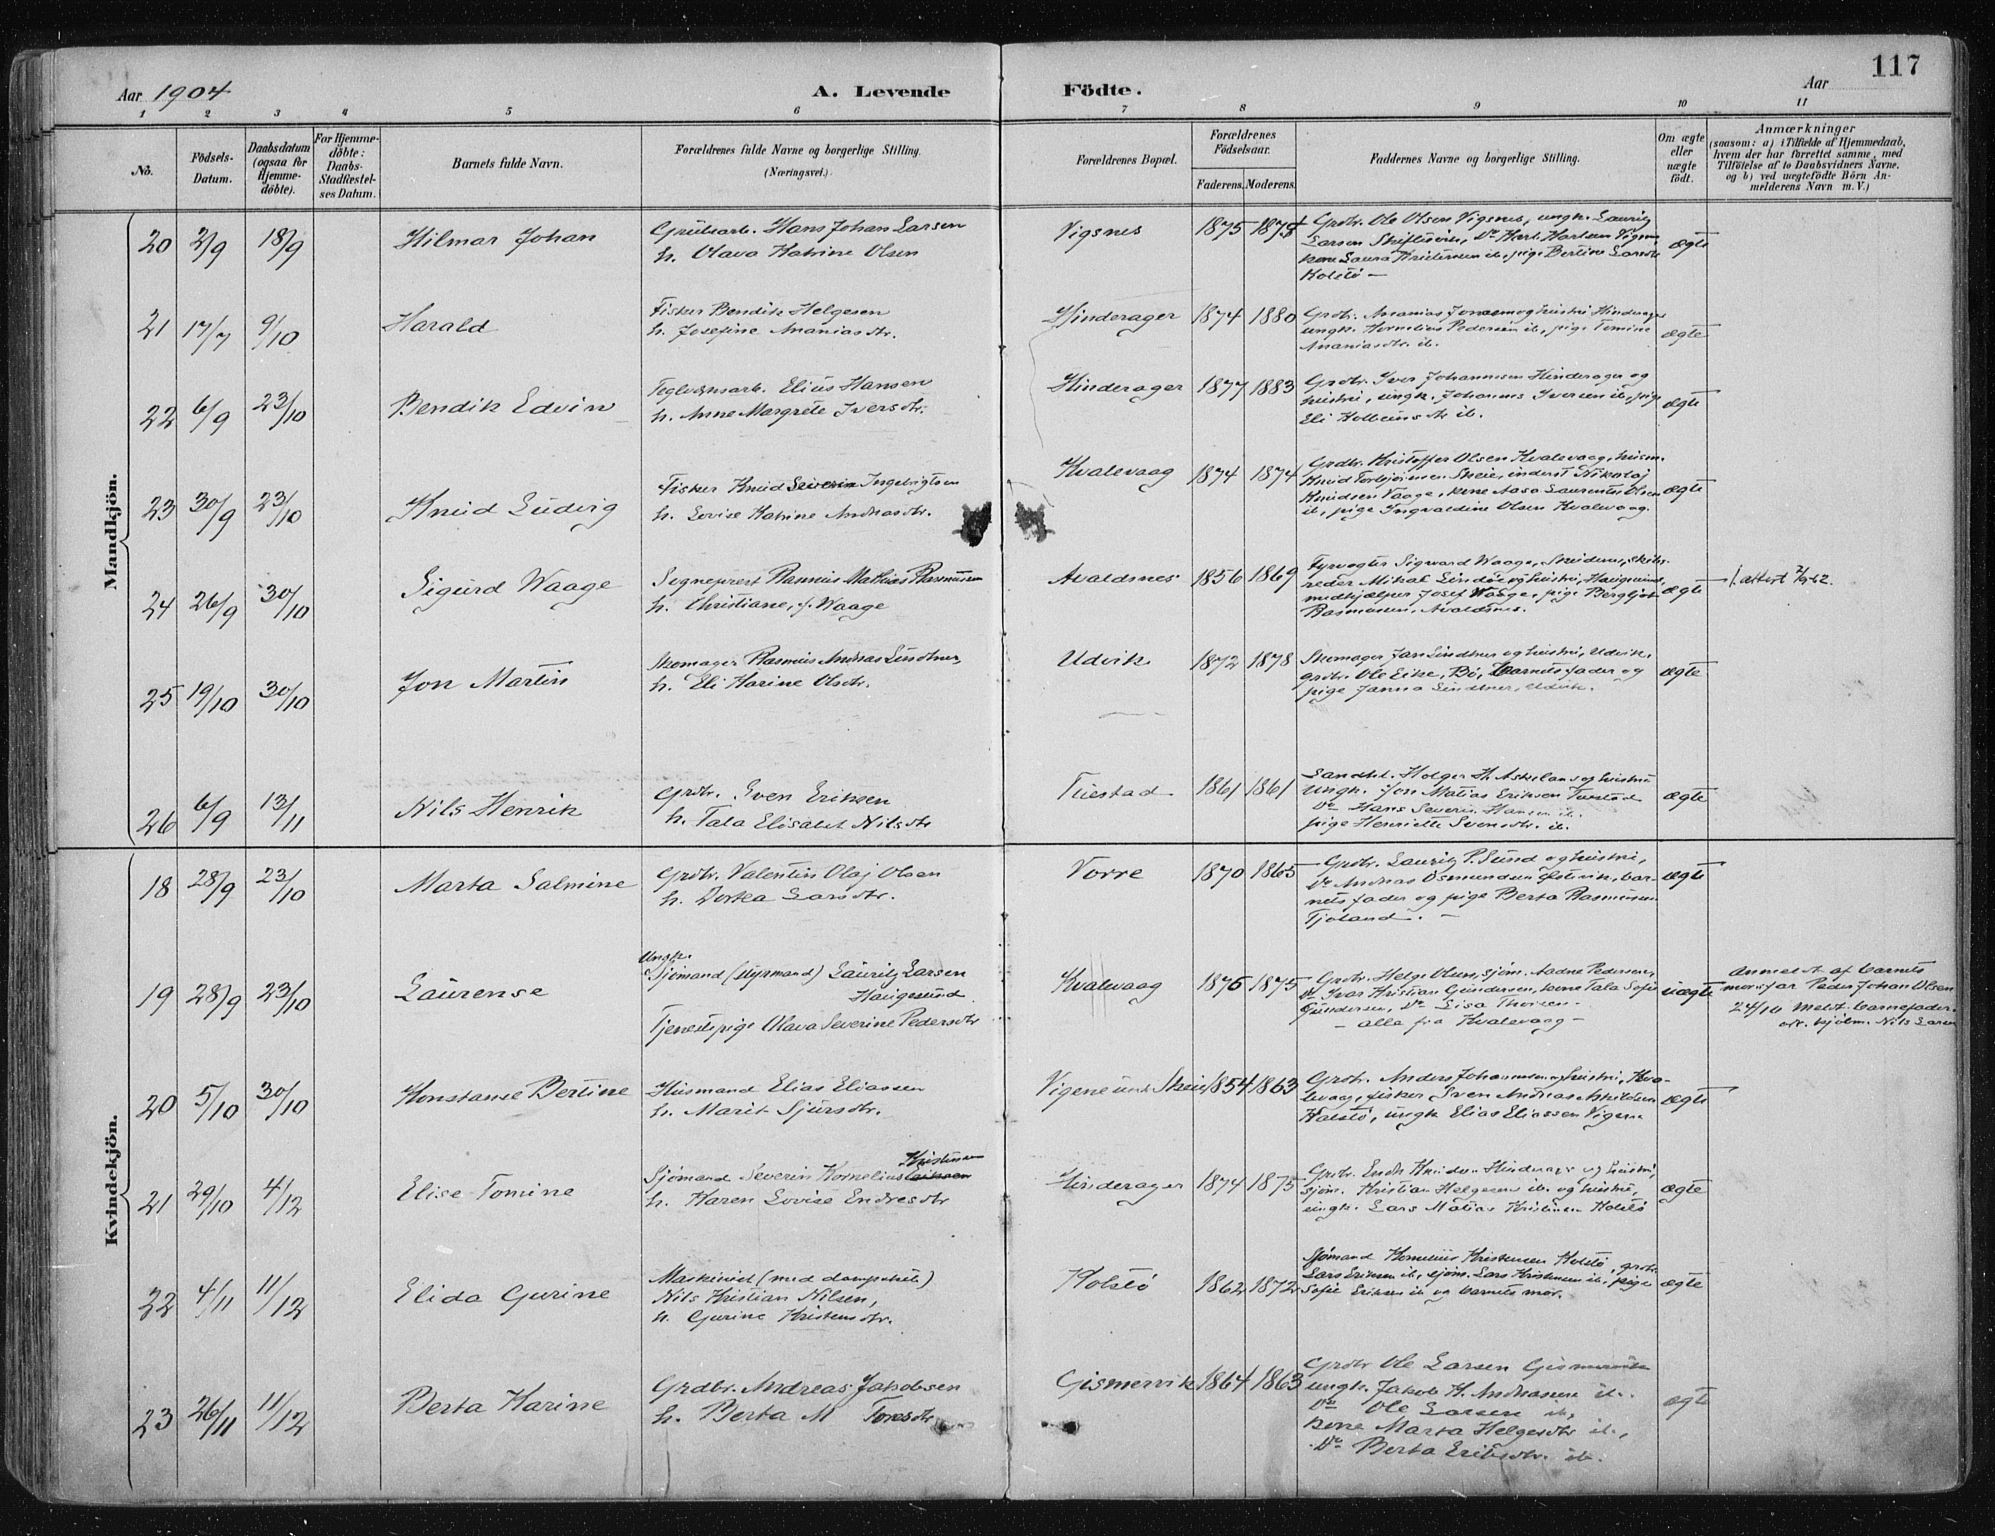 117
Aar 1904
A. Levende
Födte.
Aar
1 2 3 4 5 6 7 8 9 10 11
No.
Födsels-
Datum.
Daabsdatum
(ogsaa for
Hjemme-
döbte).
For Hjemme-
döbte:
Daabs-
Stadfæstel-
ses Datum.
Barnets fulde Navn.
Forældrenes fulde Navne og borgerlige Stilling.
(Næringsvei.)
Forældrenes Bopæl.
Forældrenes
Födselsaar.
Faderens. Moderens.
Faddernes Navne og borgerlige Stilling.
Om ægte
eller
uægte
födt.
Anmærkninger
(saasom: a) i Tilfælde af Hjemmedaab,
hvem der har forrettet samme, med
Tilföielse af to Daabsvidners Navne.
og b) ved uægtefödte Börn An-
melderens Navn m. V.)
Mandkjön.
20 2/9 18/9 Hilmar Johan
Grubearb. Hans Johan Larsen
h. Olava Katrine Olsen
Vigsnes 1875 1875
Grdbr. Ole Olsen Vigsnes, ungk. Lauritz
Larsen
Kolstö —
ægte
21 17/7 9/10 Harald
Fisker Bendik Helgesen
h. Josefine Ananiasdtr.
Hinderager 1874 1880
Grdbr. Ananias Jonassen og hustru Hinderager
ungk. Kornelius Pedersen ib., pige Tomine
Ananiasdtr. ib.
ægte
22 6/9 23/10 Bendik Edvin
Teglværksarb. Elius Hansen
h. Anne Margrete Iversdtr.
Hinderager 1877 1883
Grdbr. Iver Johannesen Hinderager og
hustru, ungk. Johannes Iversen ib., pige
Eli Kolbeinsdtr ib.
ægte
23 30/9 23/10 Knud Ludvig
Fisker Knud Severin Ingebrigtsen
h. Lovise Katrine Andreasdtr.
Kvalevaag 1874 1874
Grdbr. Kristoffer Olsen Kvalevaag, husm.
Knud Torbjörnsen Skeie, inderst Nikolaj
Knudsen Vaage, kone Aasa Laurentse Olsen
ib., pige Ingvaldine Olsen Kvalevaag.
ægte
24 26/9 30/10 Sigurd Waage
Sogneprest Rasmus Mathias Rasmussen
h. Christiane, f. Waage
Avaldsnes 1856 1869
Fyrvogter Sigvard Waage, Skudenes, skibs-
reder Mikal Lindöe og hustru, Haugesund,
medhjælper Josef Waage, pige Bergljot
Rasmussen, Avaldsnes.
ægte
attest
25 19/10 30/10 Jon Martin
Skomager Rasmus Andreas Lindtner,
h. Eli Karine Olsdtr.
Udvik 1872 1878
Skomager Jan Lindtner og hustru, Udvik,
grdbr. Ole Eike, Bö, barnets fader og
pige Janna Lindtner, Udvik.
ægte
26 6/9 13/11 Nils Henrik
Grdbr. Sven Eriksen
h. Tala Elisabet Nilsdtr
Tuestad 1861 1861
Landhdl. Holger H. Askeland og hustru
ungk. Jon Matias Eriksen Tuestad
Do Hans Severin Hansen ib.
pige Henriette Svensdtr. ib.
ægte
Kvindekjön.
18 28/9 23/10 Marta Salmine
Grdbr. Valentin Olaj Olsen
h. Dorka Larsdtr.
Vorre 1870 1865
Grdbr. Lauritz P. Sund og hustru,
Do Andreas Osmundsen bar-
nets fader og pige Berta Rasmussen
Tjoland. —
ægte
19 28/9 23/10 Laurense
Ungk.
Sjömand (styrmand) Lauritz Larsen
Haugesund
Tjenestepige Olava Severine Pedersdtr
Kvalevaag 1876 1875
Grdbr. Helge Olsen, sjöm. Aadne Pedersen,
Do Ivar Kristian Gundersen, kone Tala Sofie
Gundersen, Do Lisa Thorsen —
— alle fra Kvalevaag —
uægte
Anmeldt af barnets
morfar Peder Johan Olsen
24/10 Meldt barnefader
Nils Larsen
20 5/10 30/10 Konstanse Bertine
Husmand Elias Eliassen
h. Marit Sjursdtr.
Vigene und. Skeie 1854 1863
Grdbr. Anders Johannesen og hustru, Kva-
levaag, fisker Sven Andreas Askildsen
Kolstö, ungk Elias Eliassen Vigene
ægte
21 29/10 4/12 Elise Tomine
Kristensen
Sjömand Severin Kornelius Eriksen
h. Karen Lovise Endresdtr
Hinderager 1874 1875
Grdbr. Endre Knudsen Hinderager og hustru,
sjöm. Kristian Helgesen ib. og hustru,
ungk. Lars Matias Kristensen Kolstö
ægte
22 4/11 11/12 Elida Gurine
Maskinist (med dampskib)
Nils Kristian Nilsen,
h. Gurine Kristensdtr.
Kolstö 1862 1872
Sjömand Kornelius Kristensen Kolstö, grdbr.
Lars Eriksen ib., sjöm. Lars Kristensen ib., pige
Sofie Eriksen ib og barnets mor.
ægte
23 26/11 11/12 Berta Karine
Grdbr. Andreas Jakobsen
h. Berta M Toresdtr
Gismervik 1864 1863
Grdbr Ole Larsen Gismervik
ungk. Jakob H. Andreassen ib.
Do Ole Larsen ib,
kone Marta Helgesdtr ib.,
Do Berta Eriksdtr. ib.
ægte